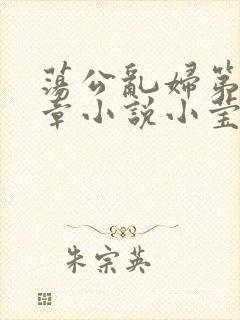 蕩公亂婦第
章小説小莹
朱宗英